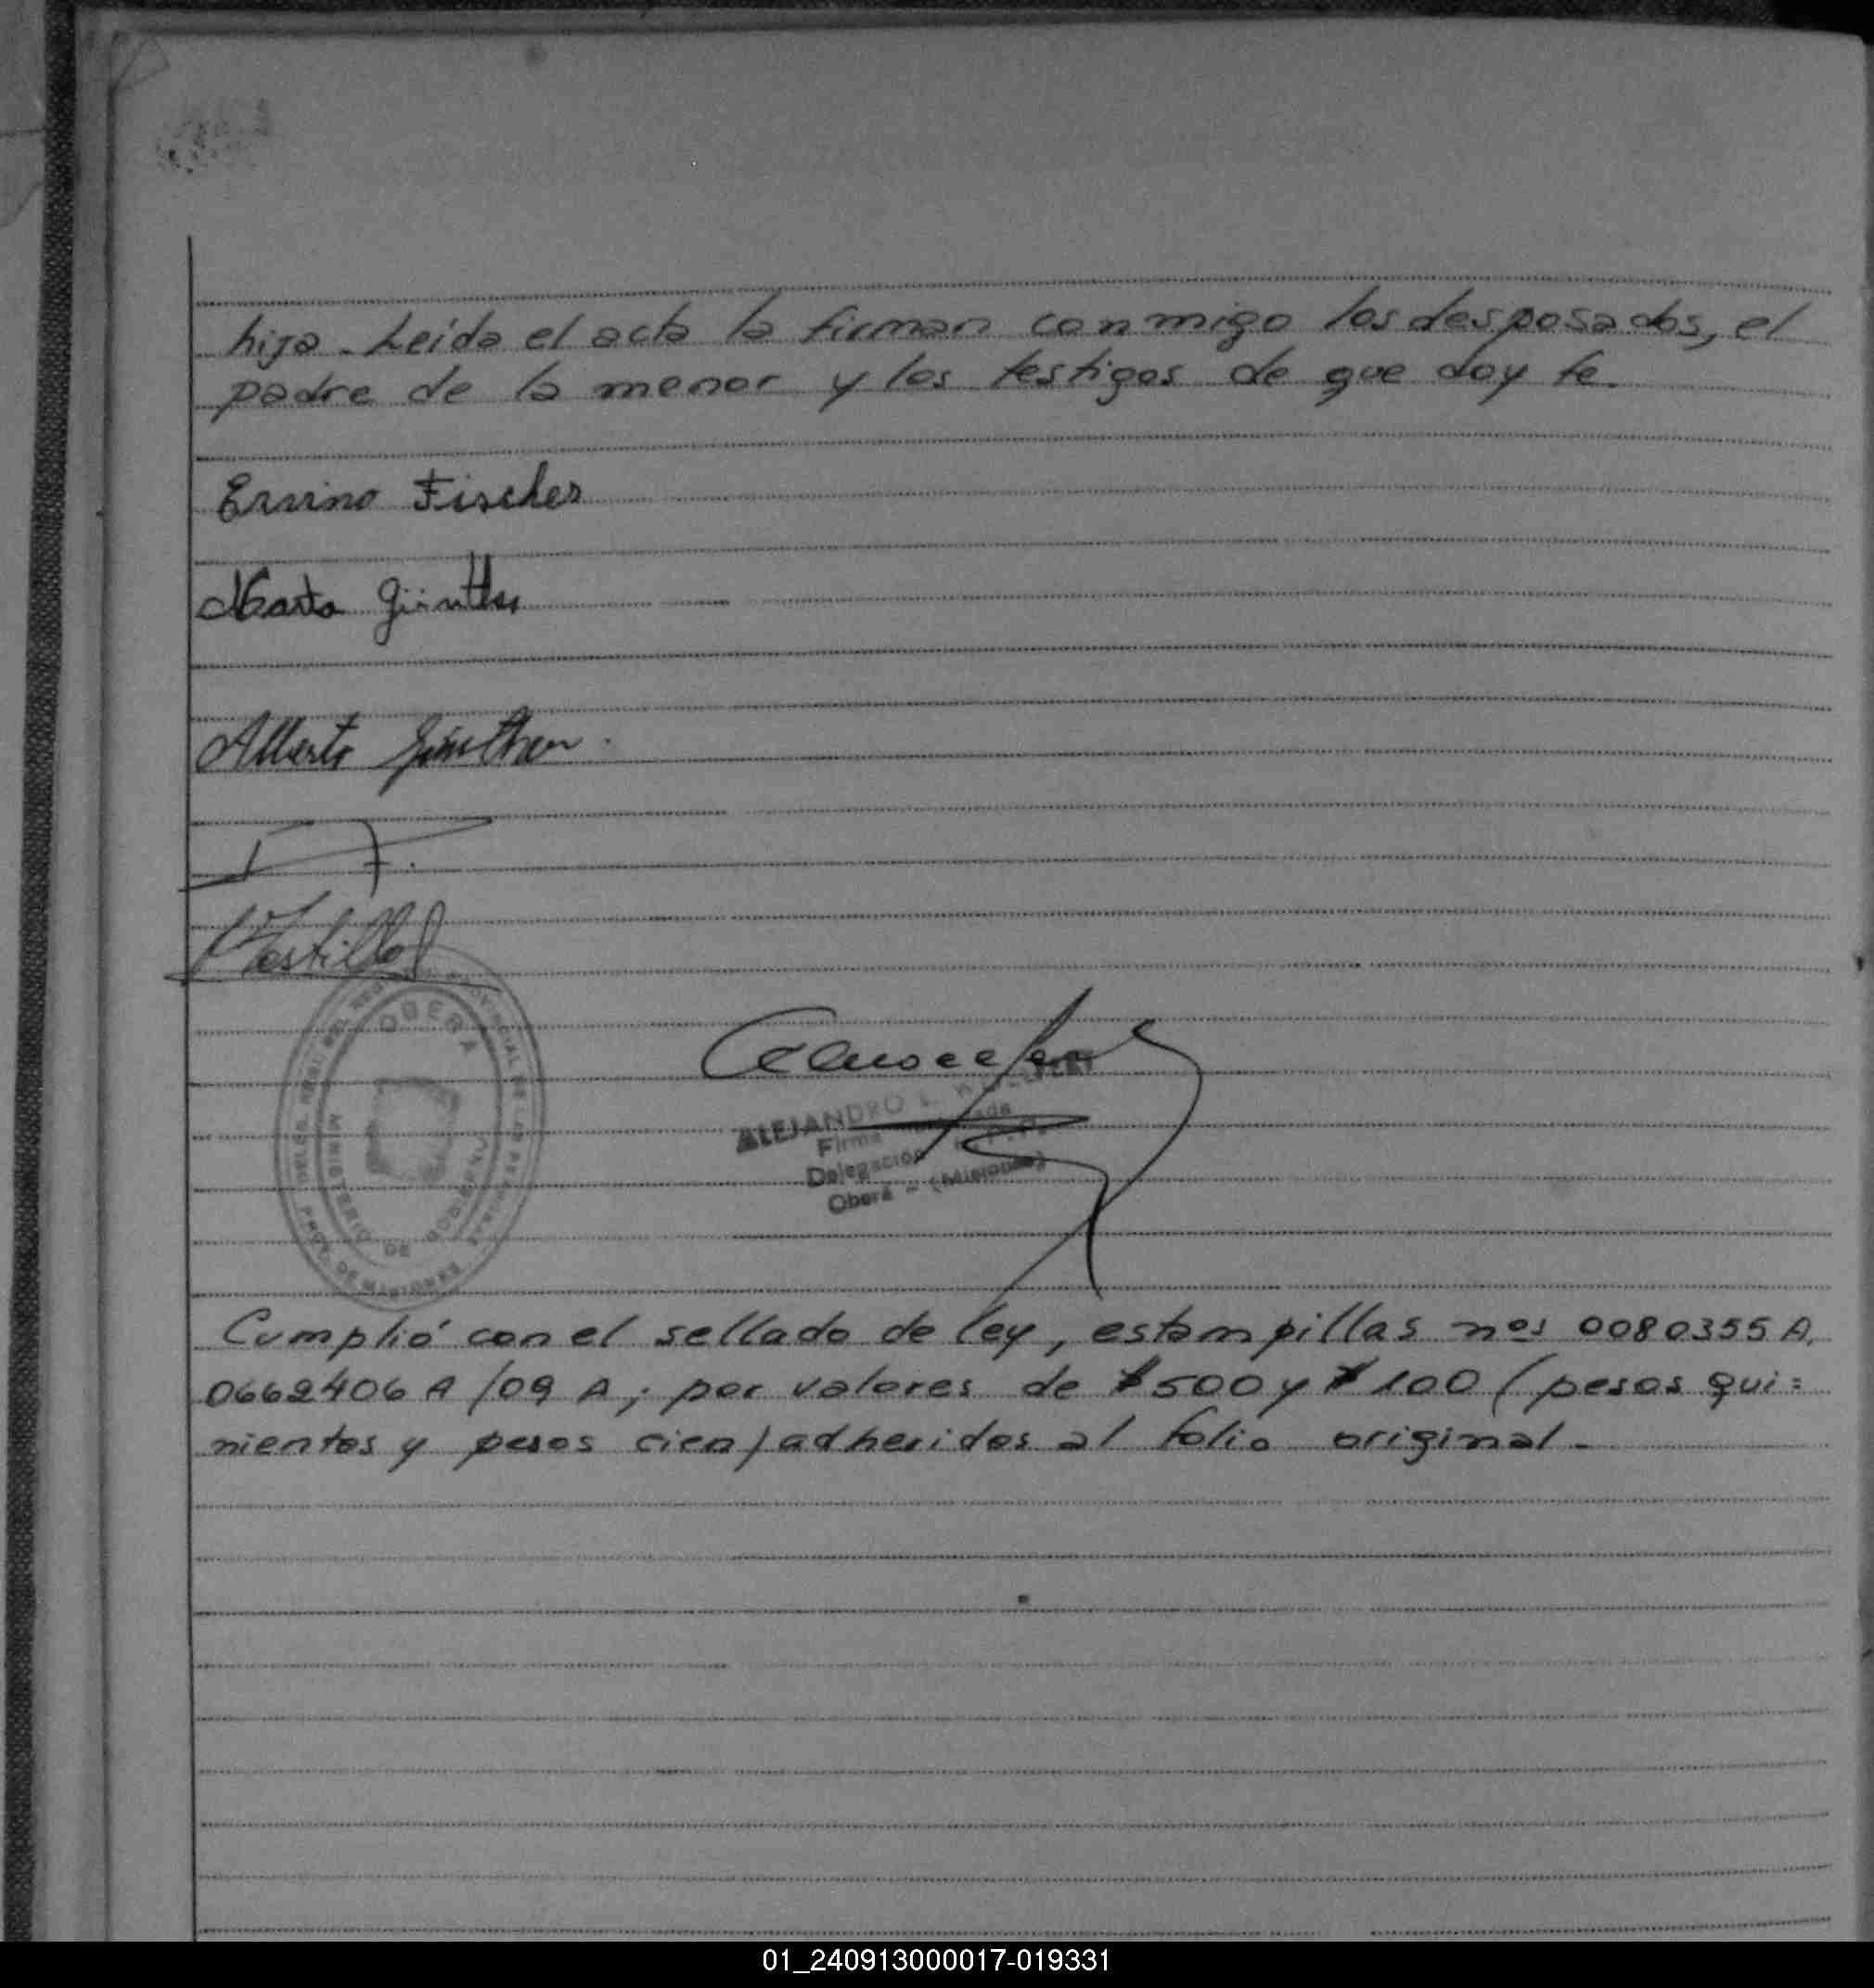 hija. Leída el acta la firman conmigo los desposados, el
padre de la menor y los testigos de que doy fe.
Ervino Fischer
Marta Günther
Alberto Günther.
OBERA
MINISTERIO DE GOBIERNO
PROV. DE MISIONES
ALEJANDRO
Firma
Delegación
Oberá - (Misiones)
Cumplió con el sellado de ley, estampillas nos 0080355 A.
0662406 A /09 A; por valores de $500 y $100 (pesos qui=
nientos y pesos cien) adheridos al folio original.
01_240913000017-019331